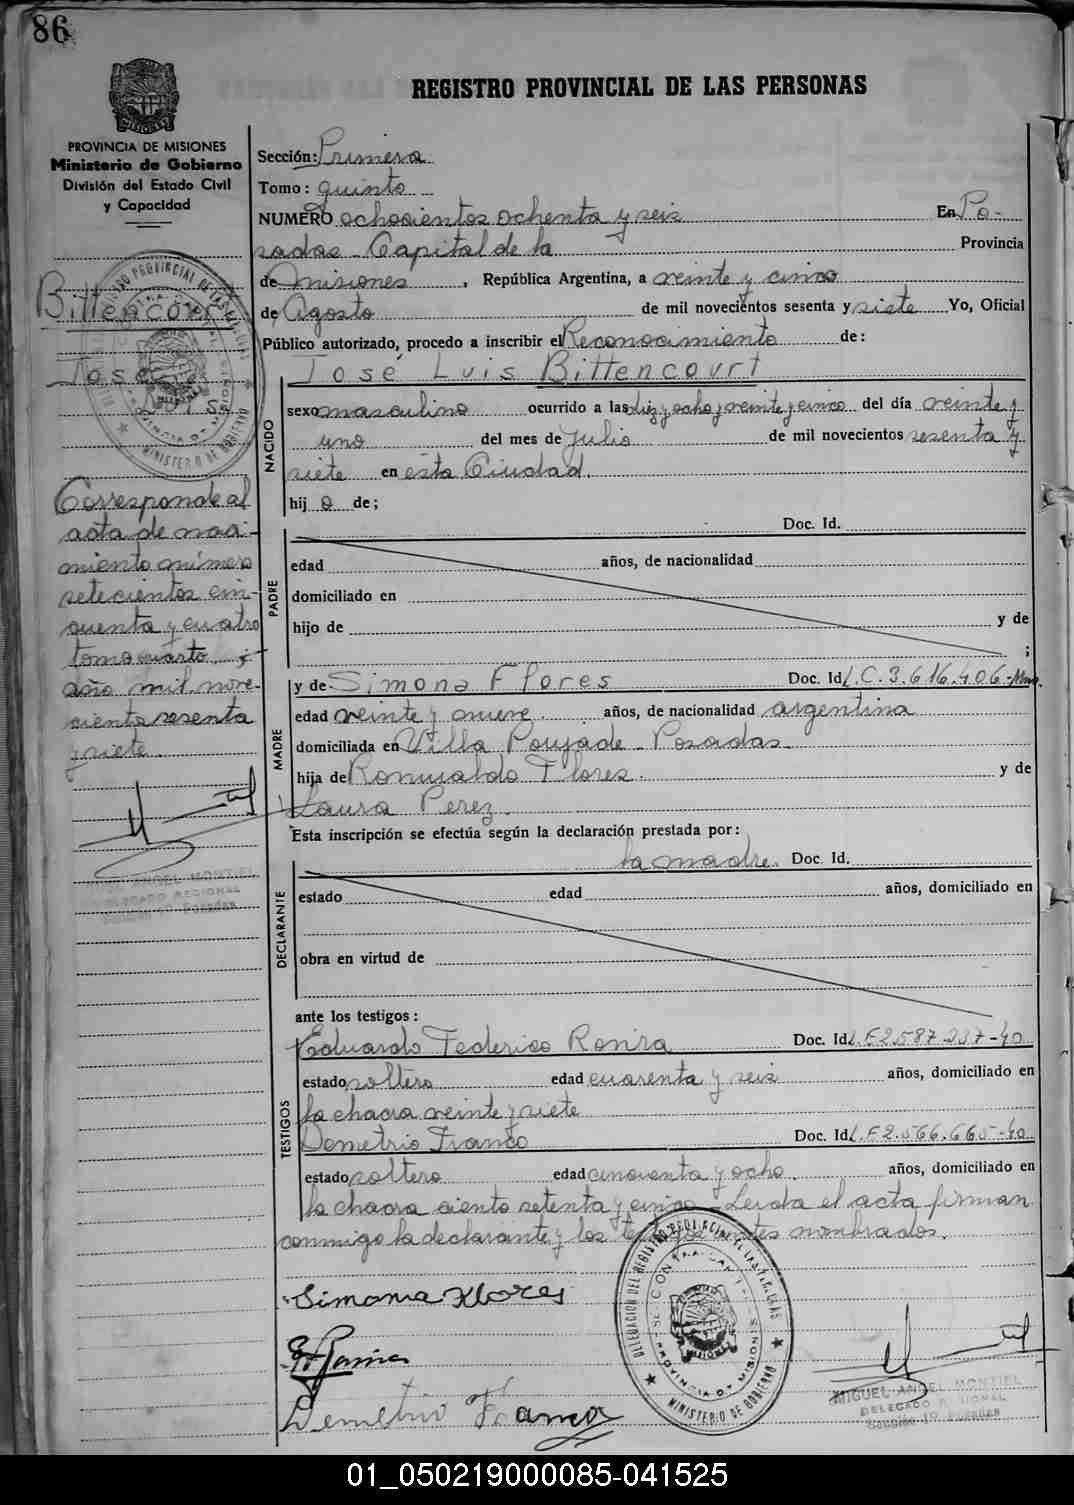 86
REGISTRO PROVINCIAL DE LAS PERSONAS
PROVINCIA DE MISIONES
Ministerio de Gobierno
División del Estado Civil
y Capacidad
Bittencourt
José
Luis
Corresponde al
acta de naci-
miento número
setecientos cin-
cuenta y cuatro
tomo cuarto
año mil nove-
cientos sesenta
y siete.
MIGUEL ANGEL MONTIEL
DELEGADO REGIONAL
Sección 1ª Posadas
Sección: Primera
Tomo: quinto
NUMERO ochocientos ochenta y seis En Po-
sadas - Capital de la Provincia
de Misiones, República Argentina, a veinte y cinco
de Agosto de mil novecientos sesenta y siete Yo, Oficial
Público autorizado, procedo a inscribir el Reconocimiento de:
José Luis Bittencourt
NACIDO
sexo masculino ocurrido a las diez y ocho y veinte y cinco del día veinte y
uno del mes de Julio de mil novecientos sesenta y
siete en esta Ciudad.
hijo de;
PADRE
Doc. Id.
edad años, de nacionalidad
domiciliado en
hijo de y de
;
MADRE
y de Simona Flores Doc. Id L.C. 3.616.406-Mnes.
edad veinte y nueve años, de nacionalidad argentina
domiciliada en Villa Poujade - Posadas
hija de Romualdo Flores. y de
Laura Perez.
Esta inscripción se efectúa según la declaración prestada por:
la madre. Doc. Id.
DECLARANTE
estado edad años, domiciliado en
obra en virtud de
ante los testigos:
TESTIGOS
Eduardo Federico Doc. Id L.E 2.587.237-40
estado soltero edad cuarenta y seis años, domiciliado en
la chacra veinte y siete
Demetrio Franco Doc. Id L.E 2.566.665-40
estado soltero edad cincuenta y ocho años, domiciliado en
la chacra ciento setenta y cinco - Leida el acta firman
conmigo la declarante y los testigos antes nombrados.
Simona Flores
Demetrio Franco
DELEGACION DEL REGISTRO PROVINCIAL DE LAS PERSONAS
PROVINCIA DE MISIONES
MINISTERIO DE GOBIERNO
MIGUEL ANGEL MONTIEL
DELEGADO REGIONAL
Sección 1ª Posadas
01_050219000085-041525